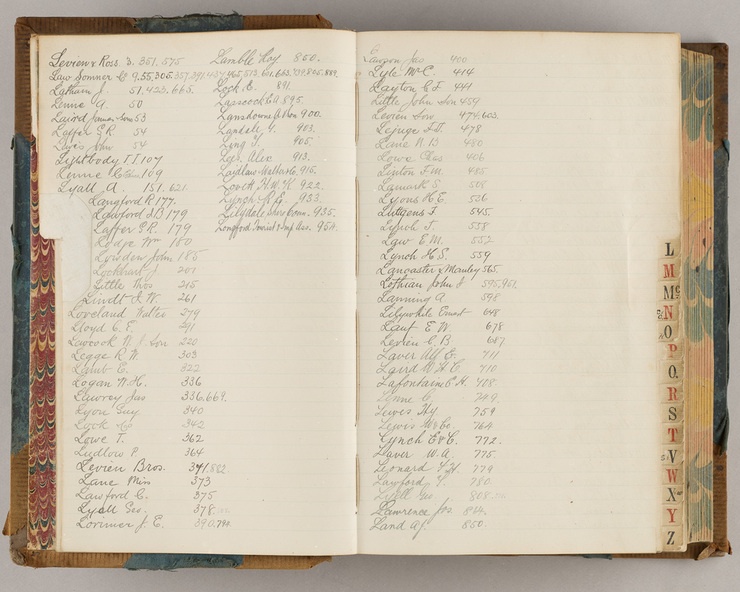 Levien & Ross S. 351, 575
Law Somner Co 9.55,305,357,391,
Latham J. 51,423,665.
Lenne A. 50
Laird James Son 53
Laffer G.R. 54
Lewis John 54
Lightbody J.J. 107
Lennie 109
Lyall A. 151.621
Langford R 177.
Lawford J.B 179
Laffer G.R. 179
Lodge Wm 180
Lowden John 185
Lockhart J 201
Little Thos 215
Lindt J.W. 261
Loveland Walter 279
Lloyd C.E. 291
Laycock W J. Son 220
Legge R W. 303
Lamb C. 322
Logan W.H. 336
Lawrey Jas 336.669.
Lyon Guy 340
Lock 342
Lowe T. 362
Ludlow P. 364
Levien Bros. 371.882.
Lane Miss 373
Lawford C. 375
Lyall Geo. 378
Lorimer J. E. 390.794.
Lamble Hay 850.
Lock E. 891.
Lasscock E.U. 895.
Lansdowne A Von 900.
Langdale G. 903.
Ling J. 905.
Lois Alex 913.
Laidlaw Walter G. 915.
Lovett H.W.K. 922.
Lynch R.G. 933.
Lilydale Shire Coun. 935.
Longford Tourist & Imp Ass. 954.
L
Lawson Jas 400
Lyle McC. 414
Layton C J 441
Little John Son 459
Levien Son 474.603.
Lepage F.T. 478
Lane N B 480
Lowe Chas 406
Linton F.M. 485
Lamark S 508
Lyons H.E. 526
Lüttgens F. 545.
Lynch T. 558
Law E M. 552
Lynch H.S. 559
Lancaster & Manley 565.
Lothian John J 595,951.
Lanning A 598
Lilywhite Ernest 648
Lauf E W. 678
Levien C.B. 687
Laver Alf E. 711
Laird W H C. 710
Lafontaine C H. 708
Lynne C. 749.
Lewis Hy 759
Lewis W & Co. 764
Lynch E & C. 772.
Laver W.A. 775.
Leonard 779
Layford 780
Lyell Geo 808
Lawrence Jos. 824.
Land Af. 850.
L
M
Mc
N
O
P
Q
R
S
T
V
W
X
Y
Z